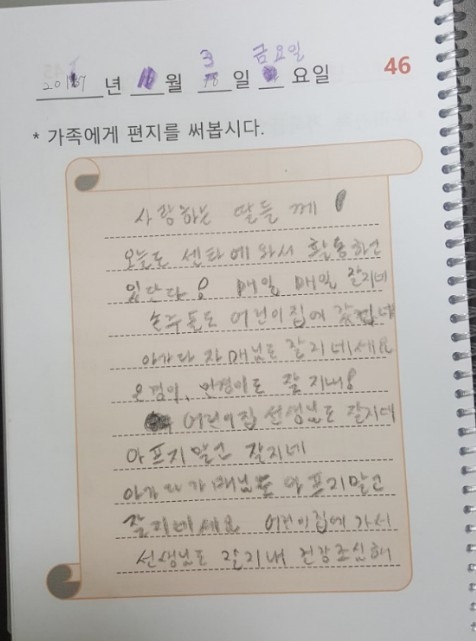 2017년 11월 3일 금요일
46
* 가족에게 편지를 써봅시다.
사랑하는 딸들께
오늘도 센타에 와서 활용하
있단다 매일 매일 잘지네
손주들도 어린이집에
아가다 자매님도 잘지네세요
은경이, 안경이도 잘지내
어린이집 선생님도 잘지네
아프지말고 잘지네
아가다 자매님도 아프지말고
잘지네세요 어린이집에 가서
선생님도 잘지내 건강조심해